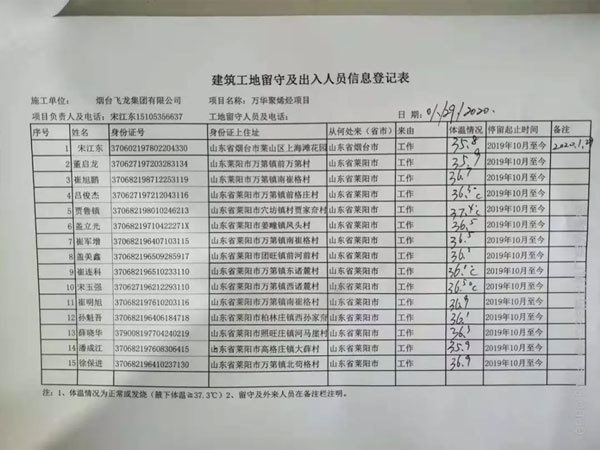 建筑工地留守及出入人员信息登记表
施工单位: 烟台飞龙集团有限公司 项目名称:万华聚烯烃项目
项目负责人及电话:宋江东15105356637 工地留守人员及电话: 日期:01/29/2020.
序号 姓名 身份证号 身份证上住址 从何处来(省市) 来由 体温情况 停留起止时间 备注
1 宋江东 370602197802204330 山东省烟台市莱山区上海滩花园 山东省烟台市 工作 35.8 2019年10月至今 2020.1.29
2 董启龙 370627197203283134 山东省莱阳市万第镇前万第村 山东省莱阳市 工作 35.9 2019年10月至今
3 崔旭鹏 370682198712253119 山东省莱阳市万第镇南崔格村 山东省莱阳市 工作 36.7 2019年10月至今
4 吕俊杰 370627197212043116 山东省莱阳市万第镇前格庄村 山东省莱阳市 工作 36.5℃ 2019年10月至今
5 贾鲁镇 370682198010246213 山东省莱阳市穴坊镇村贾家夼村 山东省莱阳市 工作 2019年10月至今
6 盖立元 37068219710422271X 山东省莱阳市姜疃镇凤头村 山东省莱阳市 工作 36.5 2019年10月至今
7 崔军增 370682196407103115 山东省莱阳市万第镇南崔格村 山东省莱阳市 工作 36.5 2019年10月至今
8 盖美鑫 370682196509285917 山东省莱阳市团旺镇前河前村 山东省莱阳市 工作 36.1 2019年10月至今
9 崔连科 370682196510233110 山东省莱阳市万第镇东诸麓村 山东省莱阳市 工作 36.1℃ 2019年10月至今
10 宋玉强 370682196510233110 山东省莱阳市万第镇西诸麓村 山东省莱阳市 工作 36.5℃ 2019年10月至今
11 崔明旭 370682197610203116 山东省莱阳市万第镇南崔格村 山东省莱阳市 工作 36.9 2019年10月至今
12 孙魁吾 370682196406184718 山东省莱阳市柏林庄镇西孙家夼 山东省莱阳市 工作 36.1 2019年10月至今
13 薛晓华 379008197704240219 山东省莱阳市照旺庄镇河马崖村 山东省莱阳市 工作 36.3 2019年10月至今
14 潘成江 370682197608306415 山东省莱阳市高格庄镇大薛村 山东省莱阳市 工作 35.9 2019年10月至今
15 徐保进 370682196410237130 山东省莱阳市万第镇北苟格村 山东省莱阳市 工作 36.9 2019年10月至今
注:1、体温情况为正常或发烧(腋下体温≧37.3℃)2、留守及外来人员在备注栏注明。